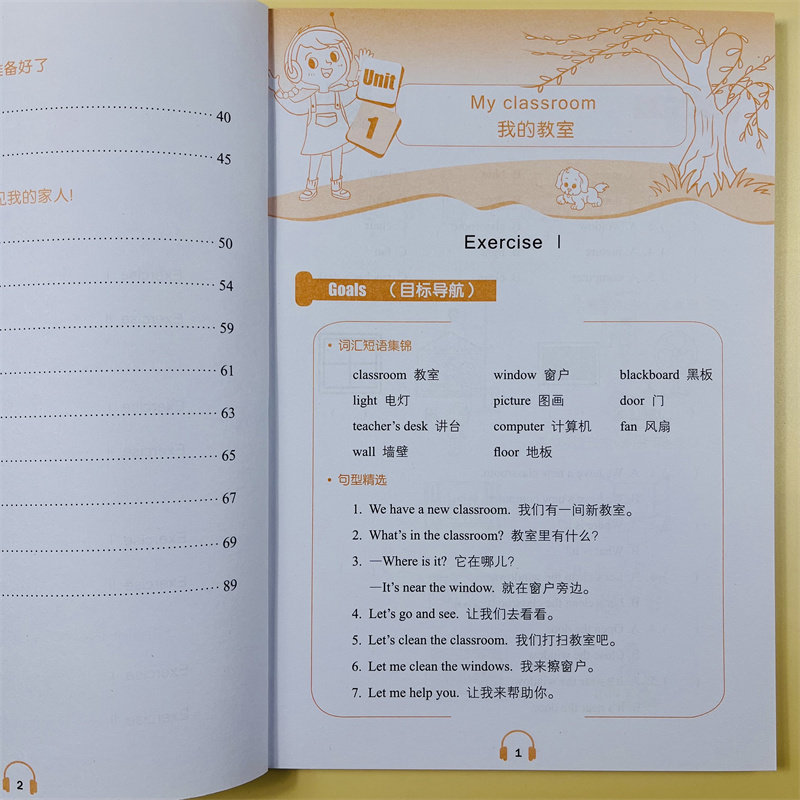 准备好了
40
45
我的家人!
50
54
59
61
63
65
67
69
89
2
Unit
1
My classroom
我的教室
Exercise I
Goals （目标导航）
• 词汇短语集锦
classroom 教室 window 窗户 blackboard 黑板
light 电灯 picture 图画 door 门
teacher's desk 讲台 computer 计算机 fan 风扇
wall 墙壁 floor 地板
• 句型精选
1. We have a new classroom. 我们有一间新教室。
2. What's in the classroom? 教室里有什么?
3. —Where is it? 它在哪儿?
—It's near the window. 就在窗户旁边。
4. Let's go and see. 让我们去看看。
5. Let's clean the classroom. 我们打扫教室吧。
6. Let me clean the windows. 我来擦窗户。
7. Let me help you. 让我来帮助你。
1